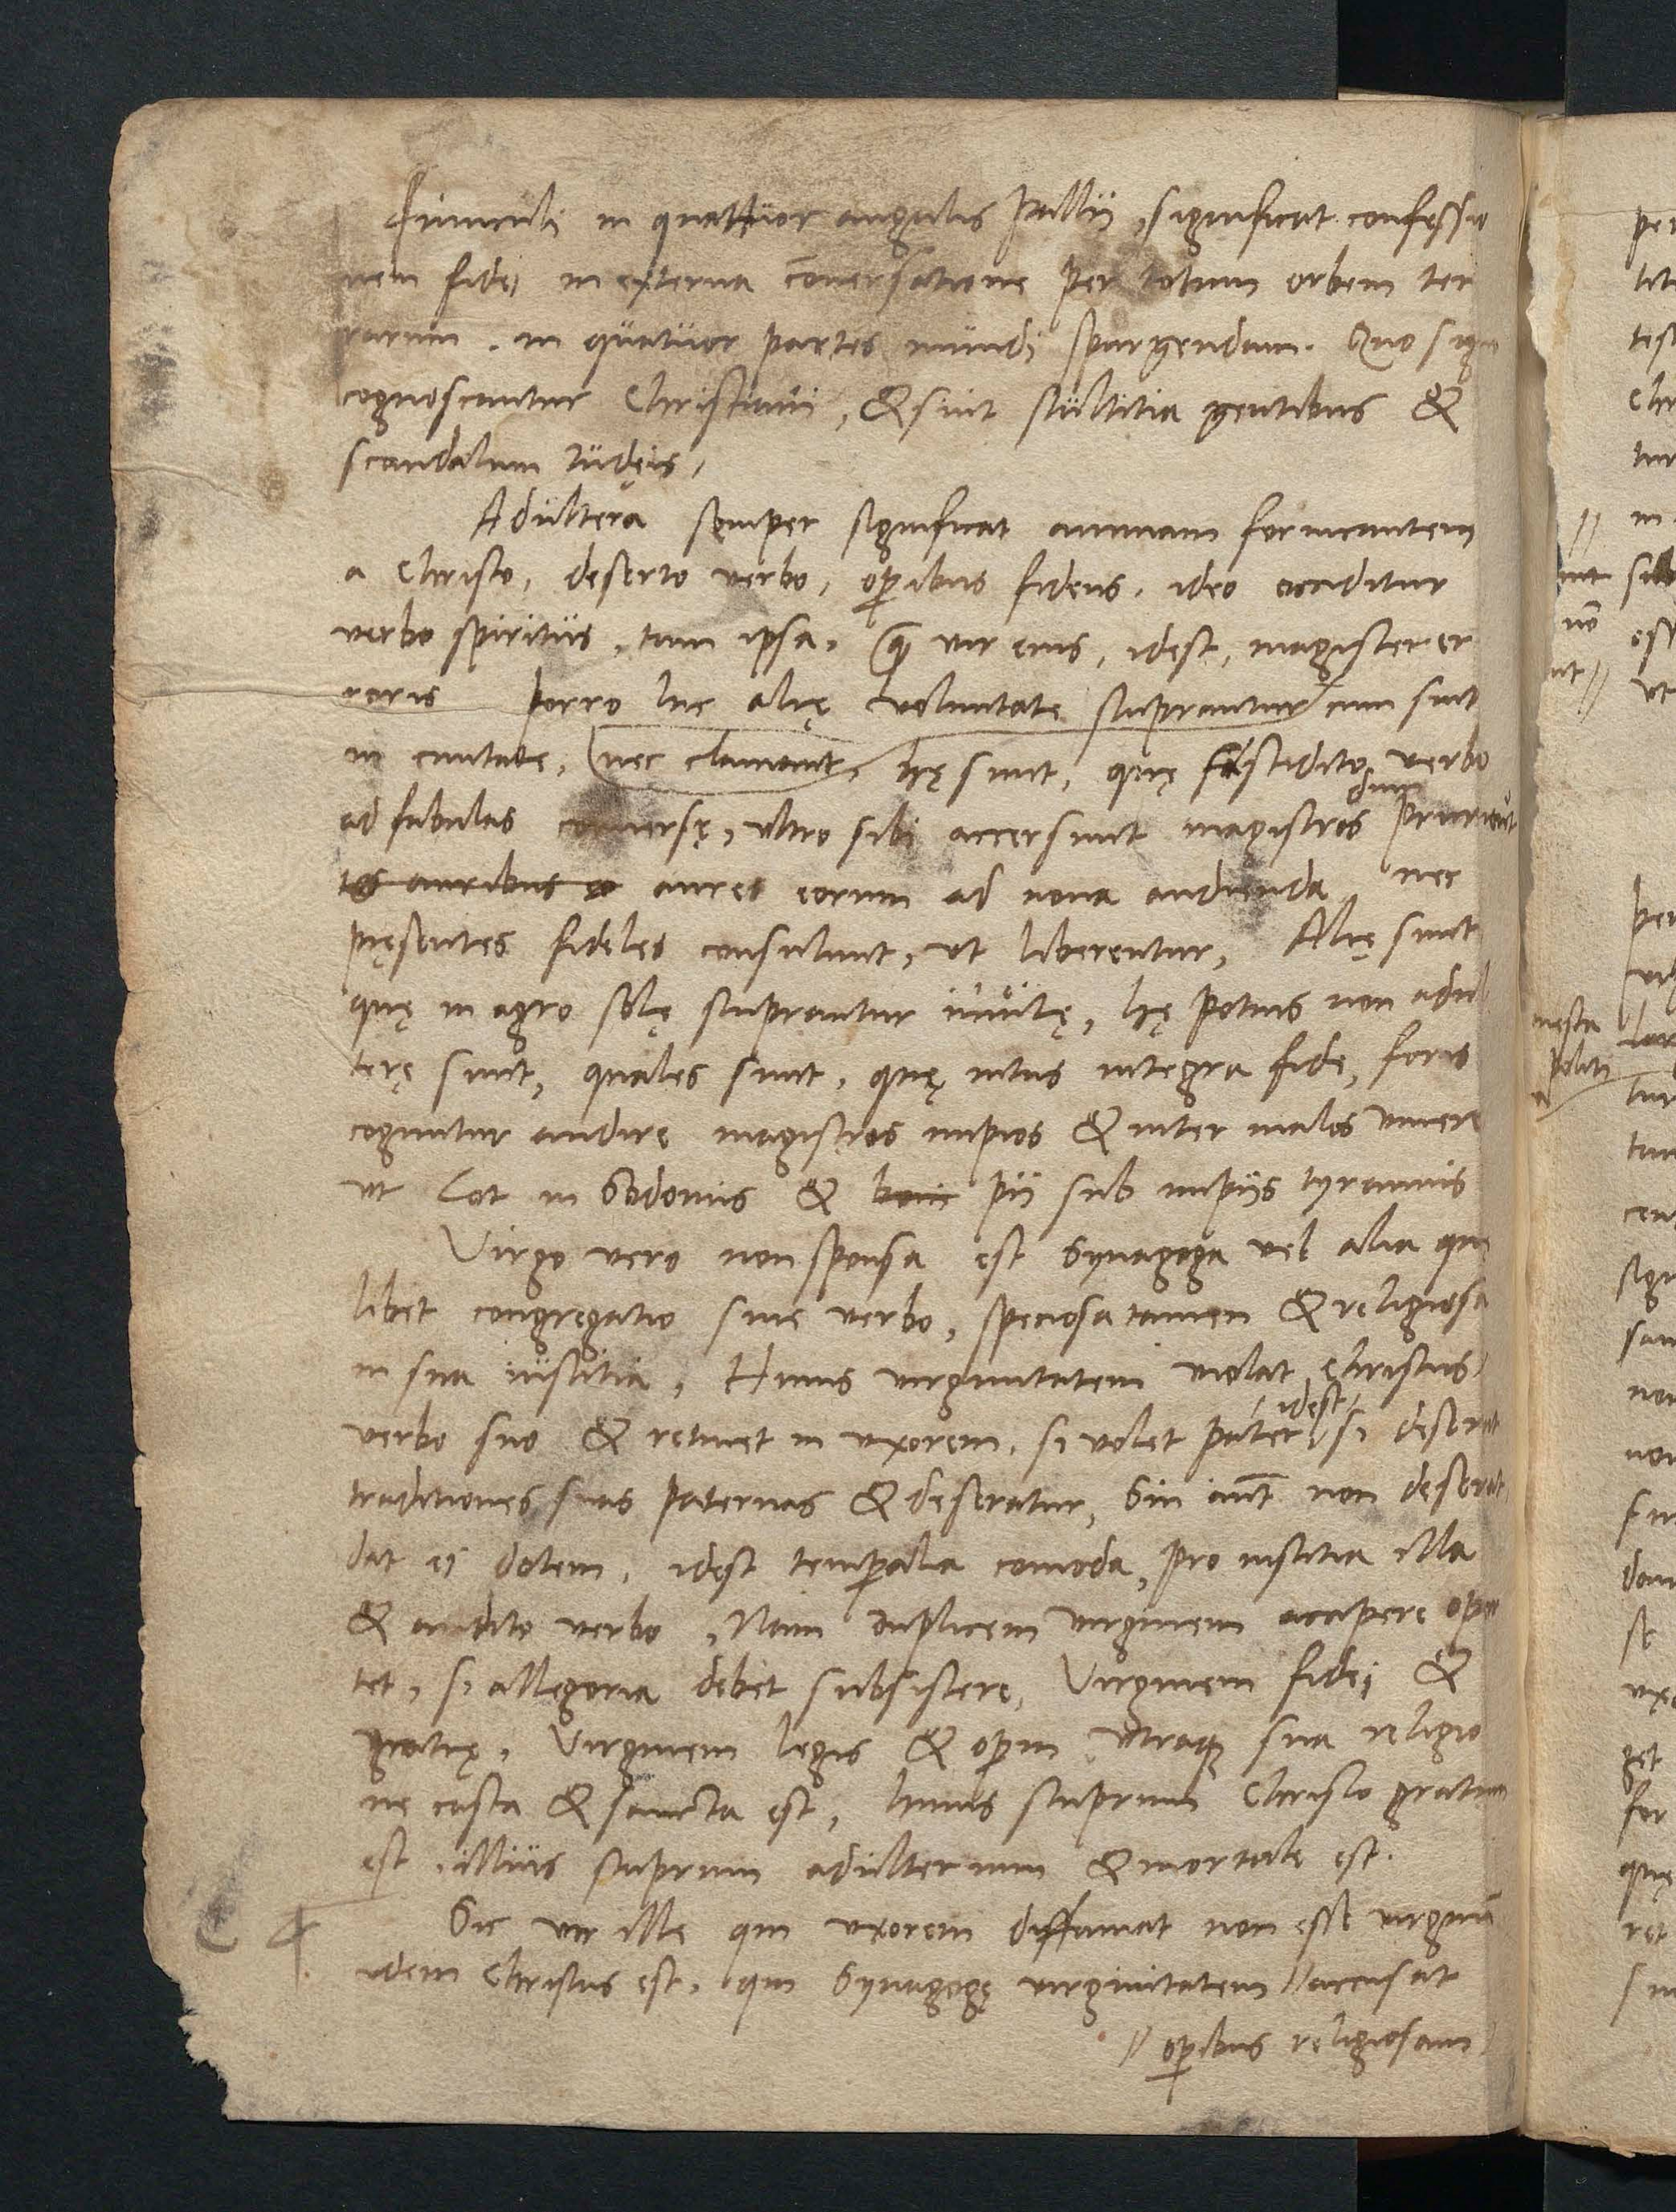 Funiculi in quattuor angulis pallii, significat confessio
nem fidei in externa cōuersatione per totum orbem ter
rarum. in quatuor partes mundi spargendam. Quo signo
cognoscantur Christiani, & sint stultitia gentibus &
scandalum Iudęis,
Adultera semper significat animam fornicantem
a Christo, deserto verbo, opibus fidens. ideo occiditur
verbo spiritus, tum ipsa, quam vir eius, idest, magister er
roris Porro hic alię voluntate stuprantur cum sint
in ciuitate, nec clamant, hę sunt, quę fastidito verbo
ad fabulas conuersę, vltro sibi accersunt magistros dum pruriunt
tes auribus aures eorum ad noua audienda nec
pręsentes fideles consulunt, vt liberentur, Alię sunt
quę in agro solę stuprantur inuitę, hę potius non adul
terę sunt, quales sunt, quę intus integra fide, foris
coguntur audire magistros impios & inter malos viuere
vt Lot in Sodomis & boni pii sub impijs tyrannis
Virgo vero non sponsa est Synagoga vel alia que
libet congregatio sine verbo, speciosa tamen & religiosa
in sua iustitia, Huius virginitatem violat Christus
verbo suo & retinet in vxorem, si volet pater idest si deserat
traditiones suas paternas & deseratur, Sin aūt non deserat,
dat ei dotem, idest temporalia comoda, pro iustitia illa
& audito verbo, Nam duplicem virginem accipere opor
tet, si allegoria debet subsistere, Virginem fidei &
gratię, Virginem legis & opum vtraque sua religio
ne casta & sancta est, huius stuprum Christo gratum
est, illius stuprum adulterium & mortale est.
Sic vir ille qui vxorem diffamat non esse virginē
idem Christus est, qui Synagogę virginitatem // accusat
// opibus religiosam